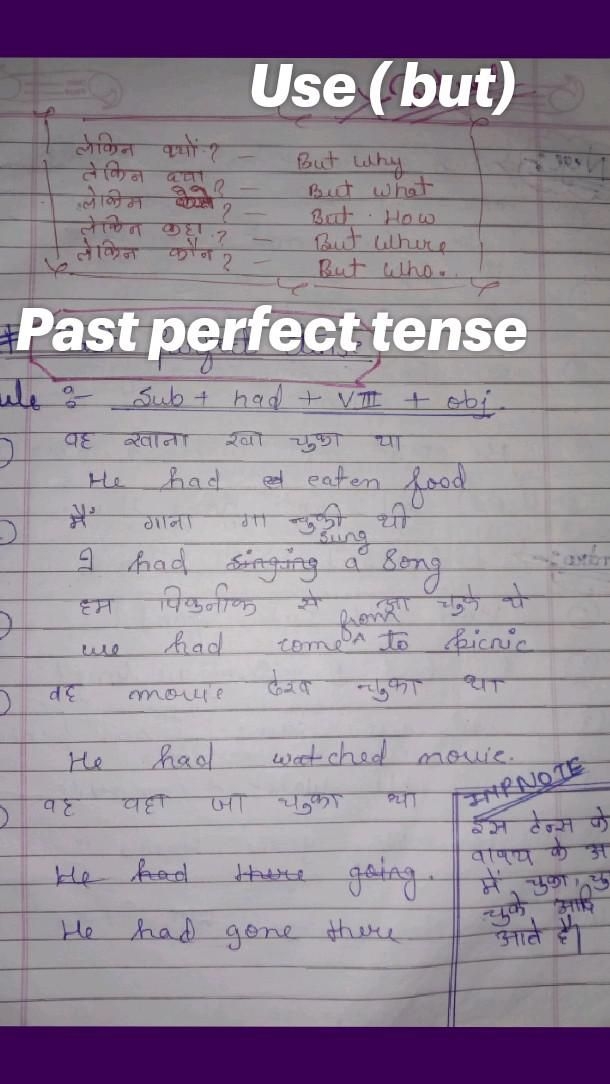 Use ( but)
लेकिन क्यों ? — But why
लेकिन क्या ? — But what
लेकिन कैसे ? — But How
लेकिन कहा ? — But where
लेकिन कौन ? — But who.
Past perfect tense
Rule :- Sub + had + VIII + obj.
वह खाना खा चुका था
He had eaten food
मैं गाना गा चुकी थी
sung
I had singing a Song
हम पिकनीक से आ चुके थे
from
we had come to picnic
वह movie देख चुका था
He had watched movie.
वह वहा जा चुका था
He had there going.
He had gone there
IMP NOTE
इस टेन्स के
वाक्य के अ
में चुका, चु
चुके आदि
आते है।